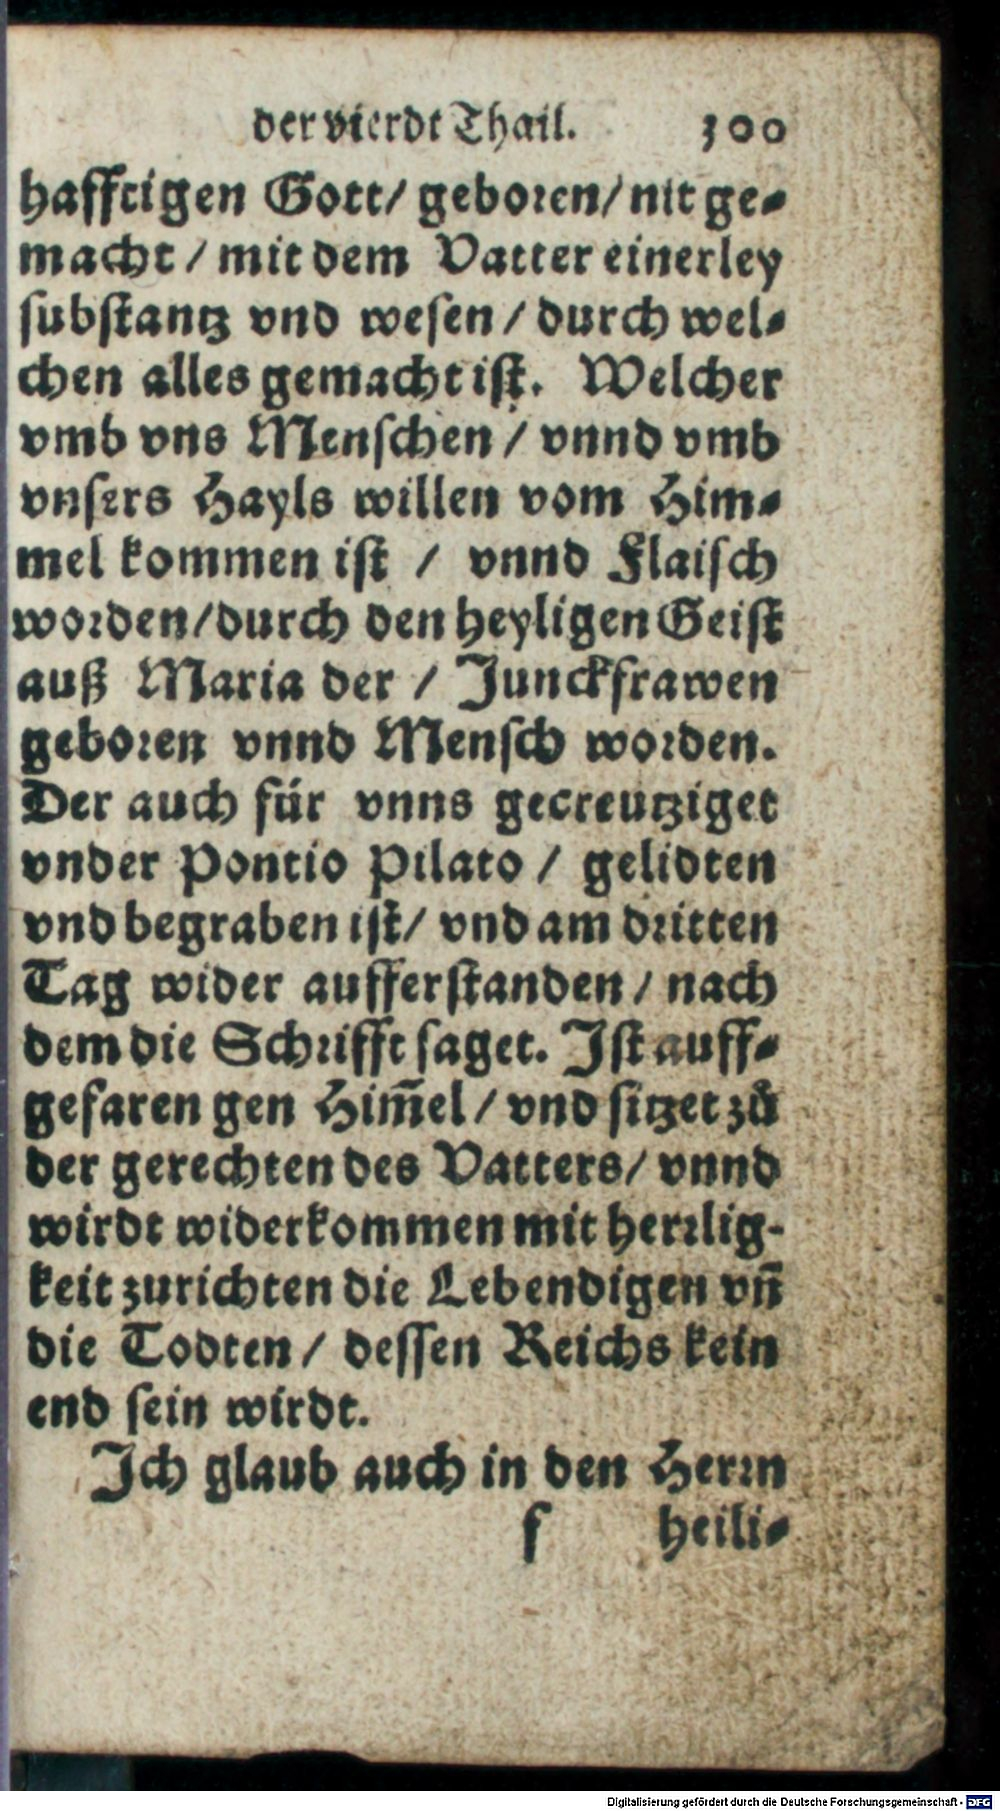 der vierdt Thail. 300
hafftigen Gott/ geboren/ nit ge-
macht / mit dem Vatter einerley
substantz vnd wesen / durch wel-
chen alles gemacht ist. Welcher
vmb vns Menschen / vnnd vmb
vnsers Hayls willen vom Him-
mel kommen ist / vnnd Flaisch
worden/durch den heyligen Geist
auß Maria der / Junckfrawen
geboren vnnd Mensch worden.
Der auch für vnns gecreutziget
vnder Pontio Pilato / gelidten
vnd begraben ist/ vnd am dritten
Tag wider aufferstanden / nach
dem die Schrifft saget. Ist auff-
gefaren gen Him̃el / vnd sitzet zů
der gerechten des Vatters/ vnnd
wirdt widerkommen mit herrlig-
keit zurichten die Lebendigen vñ
die Todten / dessen Reichs kein
end sein wirdt.
Ich glaub auch in den Herrn
f heili-
Digitalisierung gefördert durch die Deutsche Forschungsgemeinschaft - DFG